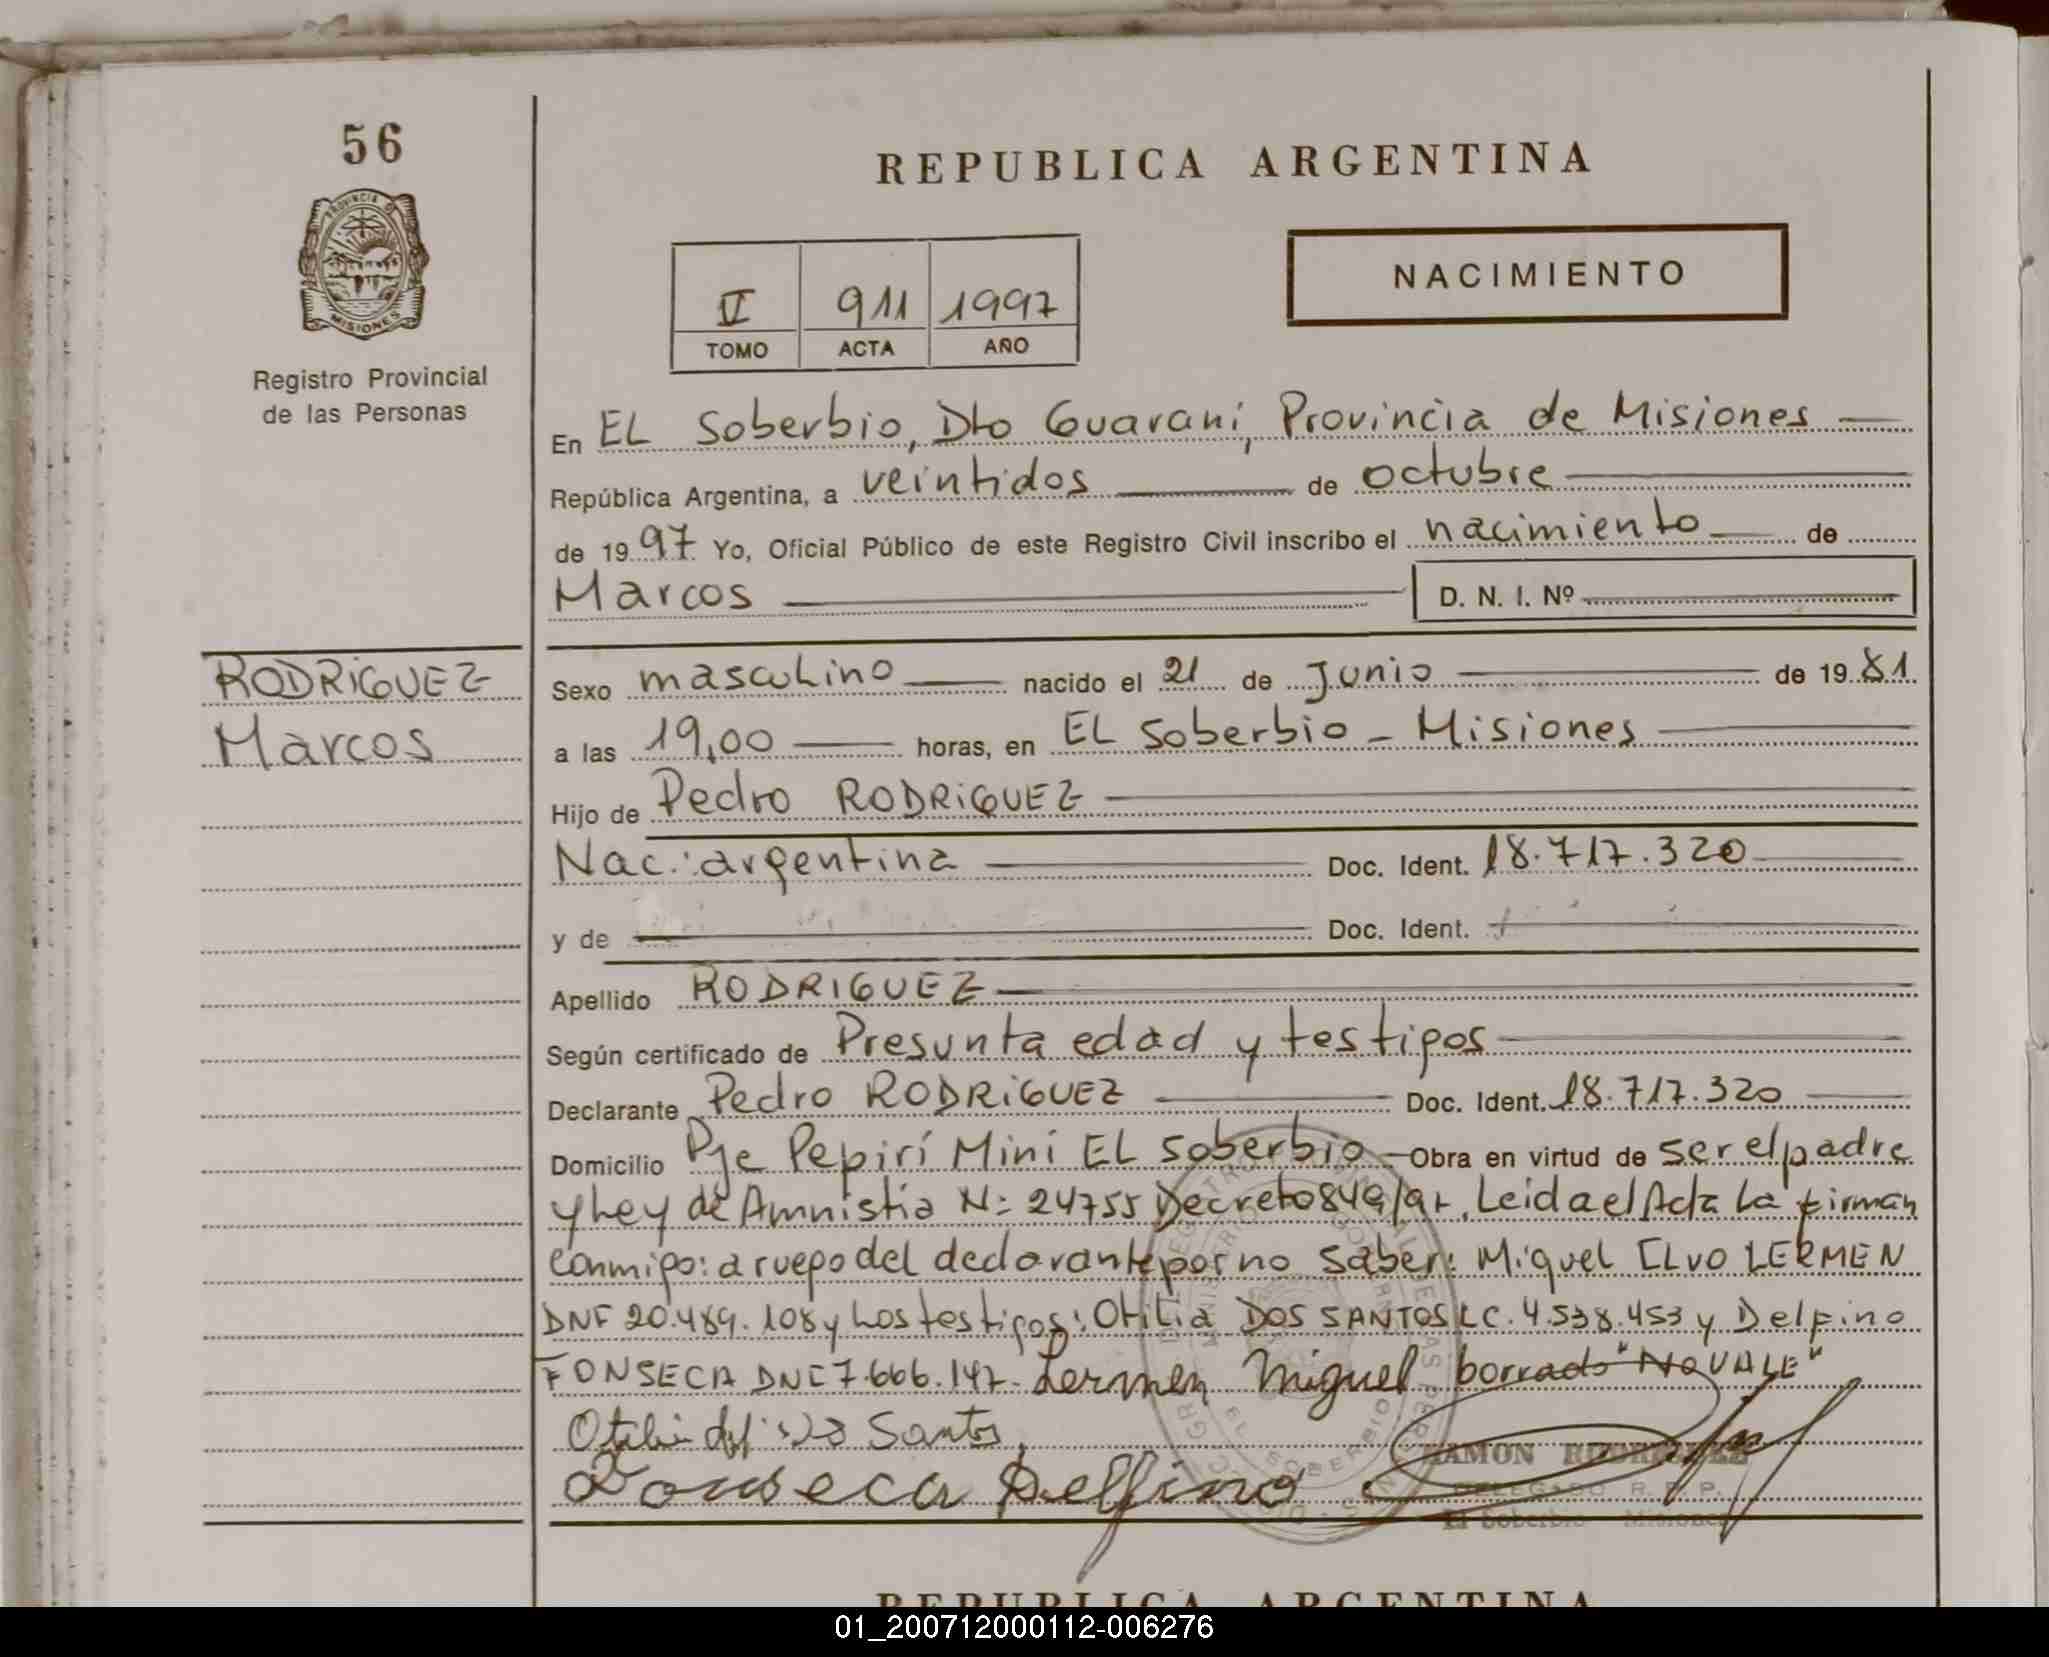 56
PROVINCIA DE
MISIONES
Registro Provincial
de las Personas
REPUBLICA ARGENTINA
NACIMIENTO
IV 911 1997
TOMO ACTA AÑO
En EL Soberbio, Dto Guarani, Provincia de Misiones
República Argentina, a veintidos de octubre
de 1997 Yo, Oficial Público de este Registro Civil inscribo el nacimiento de
Marcos D. N. I. Nº
RODRIGUEZ
Marcos
Sexo masculino nacido el 21 de Junio de 1981
a las 19,00 horas, en EL Soberbio - Misiones
Hijo de Pedro RODRIGUEZ
Nac.: argentina Doc. Ident. 18.717.320
y de Doc. Ident.
Apellido RODRIGUEZ
Según certificado de Presunta edad y testigos
Declarante Pedro RODRIGUEZ Doc. Ident. 18.717.320
Domicilio Pje Pepirí Miní EL Soberbio Obra en virtud de ser el padre
y Ley de Amnistia N: 24755 Decreto 849/97, Leida el Acta La firman
conmigo: a ruego del declarante por no saber: Miguel ELVO LERMEN
DNI 20.489.108 y Los testigos: Otilia DOS SANTOS LC. 4.538.453 y Delfino
FONSECA DNI 7.666.147. Lermen Miguel borrado "NO VALE"
Santos
Fonseca Delfino
RAMON RODRIGUEZ
DELEGADO R. P. P.
El Soberbio Misiones
EL SOBERBIO
REPUBLICA ARGENTINA
01_200712000112-006276